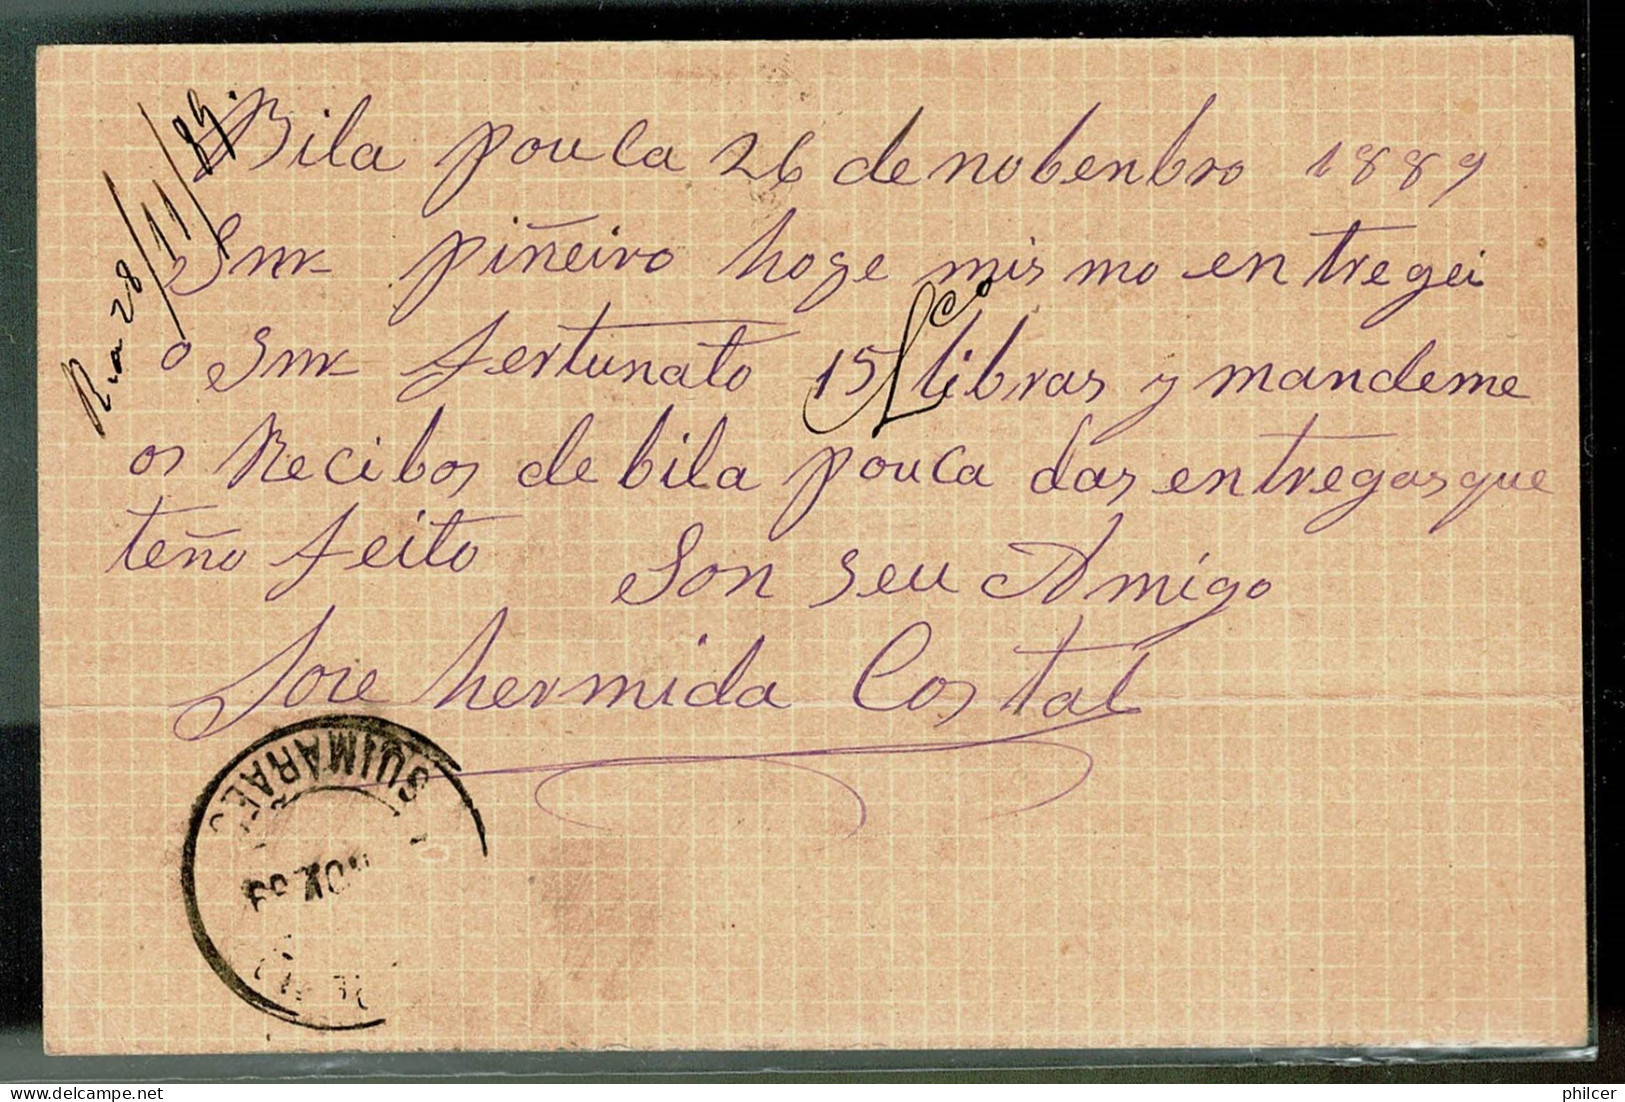 Bila pouca 26 de nobenbro 1889
Snr piñeiro hoge mismo entregei
o Snr fertunato 15 libras y mandeme
os Recibos de bila pouca das entregas que
teño feito Son seu Amigo
Jose hermida Costal
28/11/89.
GUIMARÃES
NOV 89
philcer